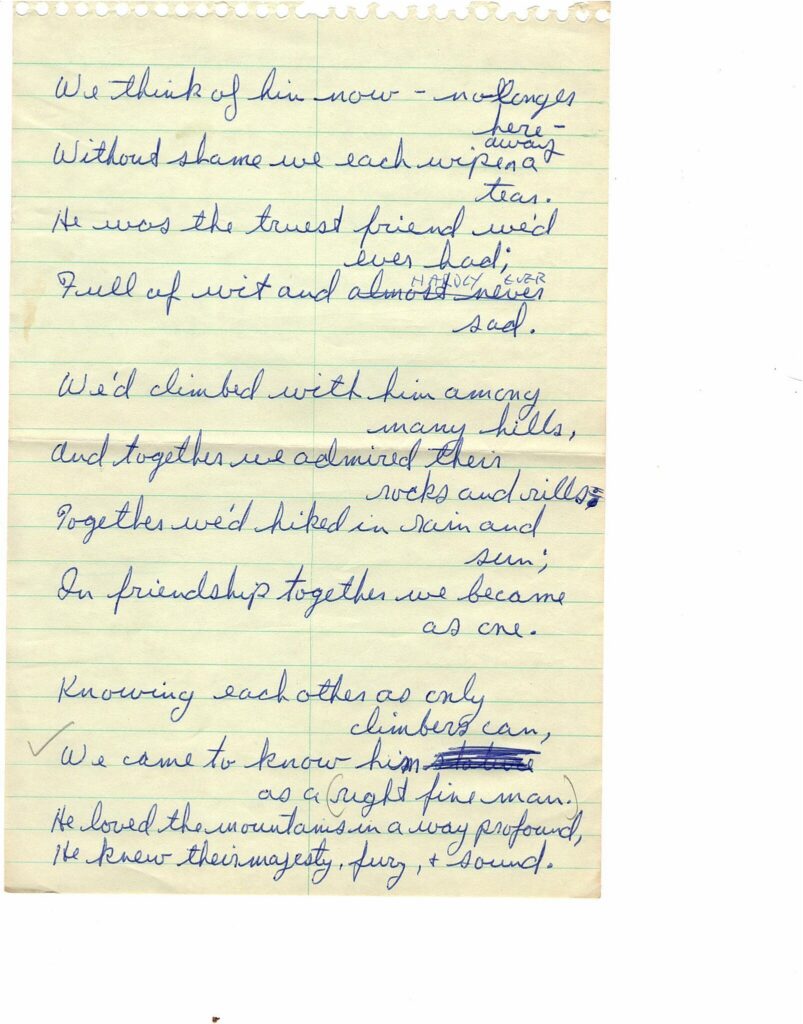 We think of him now - no longer
here -
away
Without shame we each wipe a
tear.
He was the truest friend we'd
ever had;
HARDLY EVER
Full of wit and almost never
sad.
We'd climbed with him among
many hills,
And together we admired their
rocks and rills;
Together we'd hiked in rain and
sun;
In friendship together we became
as one.
Knowing each other as only
climbers can,
We came to know him
as a (right fine man.)
He loved the mountains in a way profound,
He knew their majesty, fury, + sound.